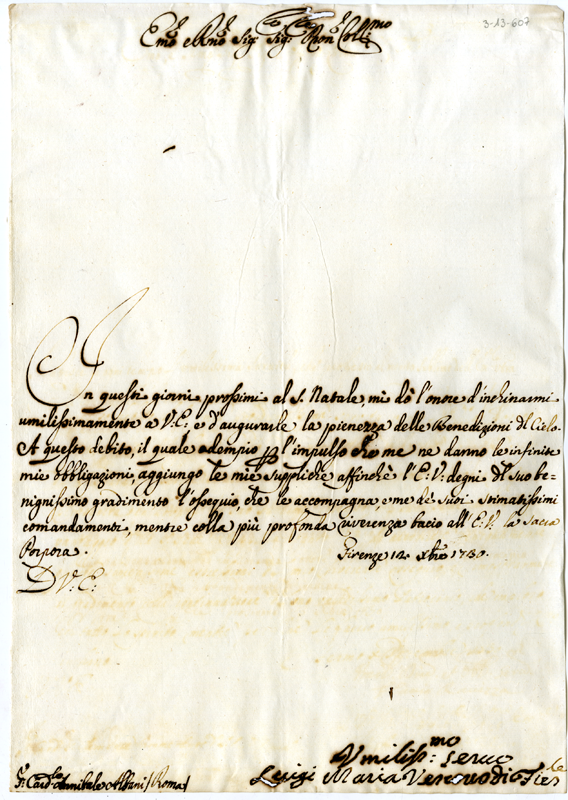 3-13-607
Emo e Rmo Sig: Sig: Pron Collmo
In questi giorni prossimi al S. Natale, mi dò l'onore d'inchinarmi
umilissimamente a V.E: e d'augurarle la pienezza delle Benedizioni di Cielo.
A questo debito, il quale adempio p l'impulso che me ne danno le infinite
mie obbligazioni, aggiungo le mie suppliche affinchè l'E:V: degni di suo be-
nignissimo gradimento l'ossequio, che le accompagna, e me de' suoi stimatissimi
comandamenti, mentre colla più profonda riverenza bacio all'E:V. la Sacra
Porpora.
Firenze 12 Xbre 1730.
D V: E:
Umilissmo Servo
Luigi Maria Vescovo di Fiesle
Sr Cardle Annibale Albani / Roma /